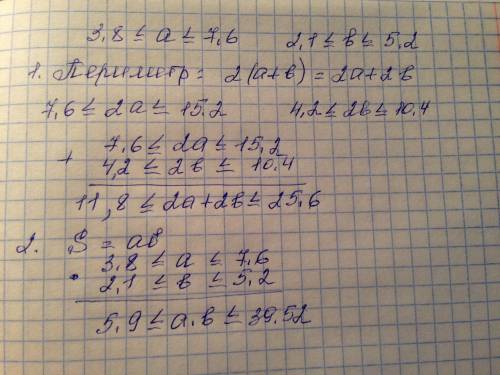 3,8 ≤ a ≤ 7,6 2,1 ≤ b ≤ 5,2
1. Периметр: 2(a+b) = 2a+2b
7,6 ≤ 2a ≤ 15,2 4,2 ≤ 2b ≤ 10,4
+ 7,6 ≤ 2a ≤ 15,2
4,2 ≤ 2b ≤ 10,4
11,8 ≤ 2a+2b ≤ 25,6
2. S = ab
3,8 ≤ a ≤ 7,6
· 2,1 ≤ b ≤ 5,2
5,9 ≤ a·b ≤ 39,52